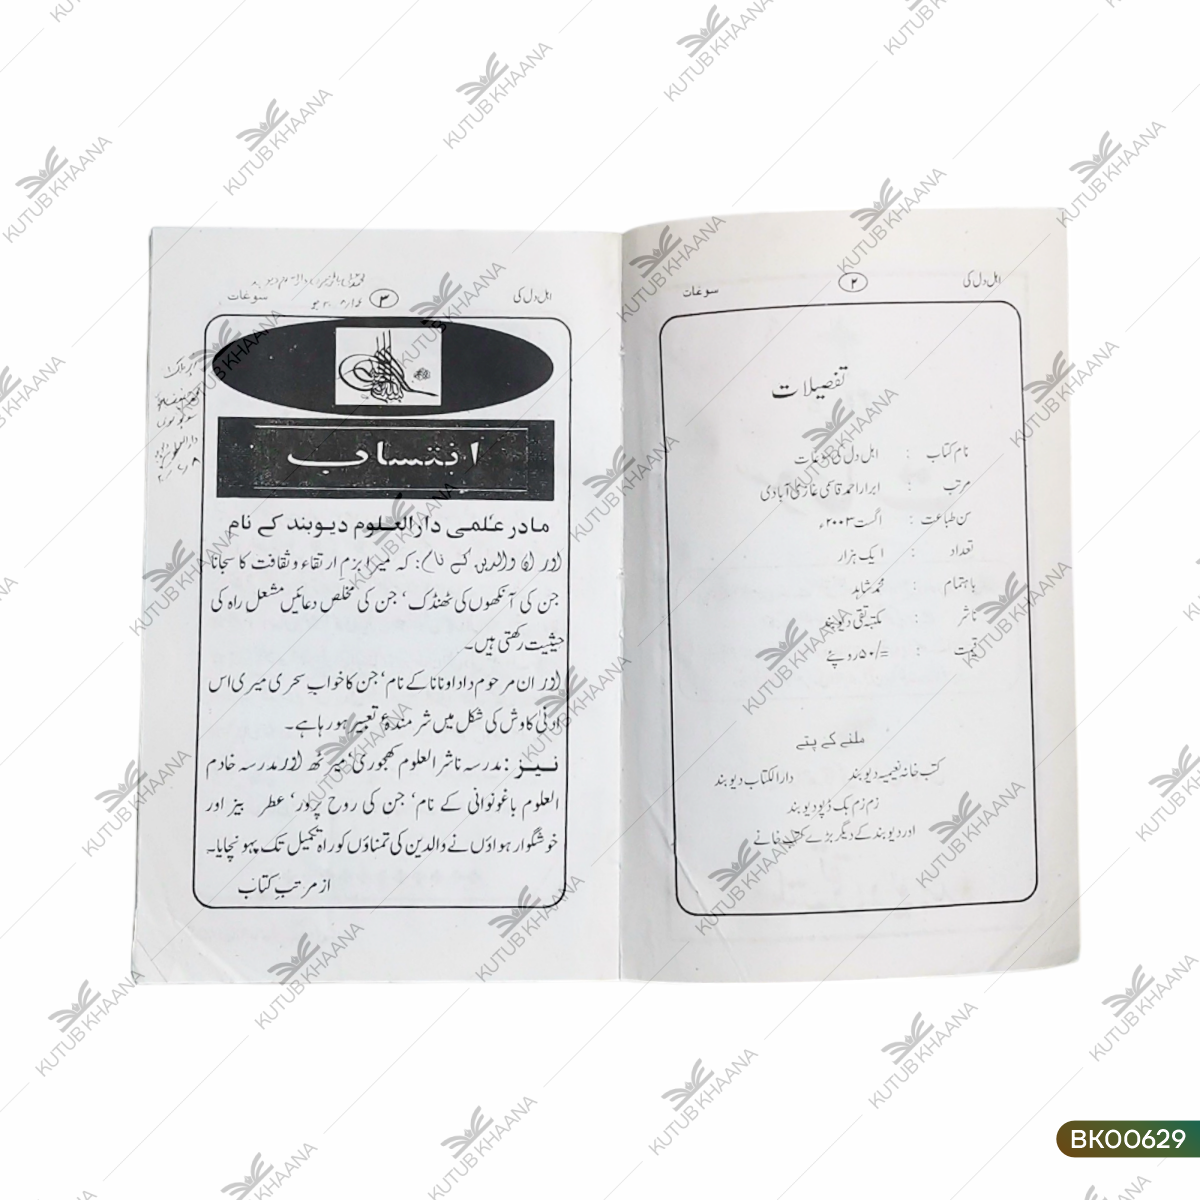 اہل دل کی ۲ سوغات
تفصیلات
نام کتاب : اہل دل کی سوغات
مرتب : ابرار احمد قاسمی غازی آبادی
سن طباعت : اگست ۲۰۰۳ء
تعداد : ایک ہزار
باہتمام : محمد شاہد
ناشر : مکتبہ تقی دیوبند
قیمت : =/۵۰ روپئے
ملنے کے پتے
کتب خانہ نعیمیہ دیوبند دارالکتاب دیوبند
زم زم بک ڈپو دیوبند
اور دیوبند کے دیگر بڑے کتب خانے
اہل دل کی ۳ سوغات
انتساب
مادر علمی دارالعلوم دیوبند کے نام
اور ان والدین کے نام: کہ میرا بزم ارتقاء و ثقافت کا سجانا
جن کی آنکھوں کی ٹھنڈک، جن کی مخلص دعائیں مشعل راہ کی
حیثیت رکھتی ہیں۔
اور ان مرحوم دادا و نانا کے نام، جن کا خواب سحری میری اس
ادنیٰ کاوش کی شکل میں شرمندۂ تعبیر ہو رہا ہے۔
نیز: مدرسہ ناشر العلوم کھجوری، میرٹھ اور مدرسہ خادم
العلوم باغونوالی کے نام، جن کی روح پرور، عطر بیز اور
خوشگوار ہواؤں نے والدین کی تمناؤں کو راہ تکمیل تک پہونچایا۔
از مرتب کتاب
KUTUB KHAANA
BK00629